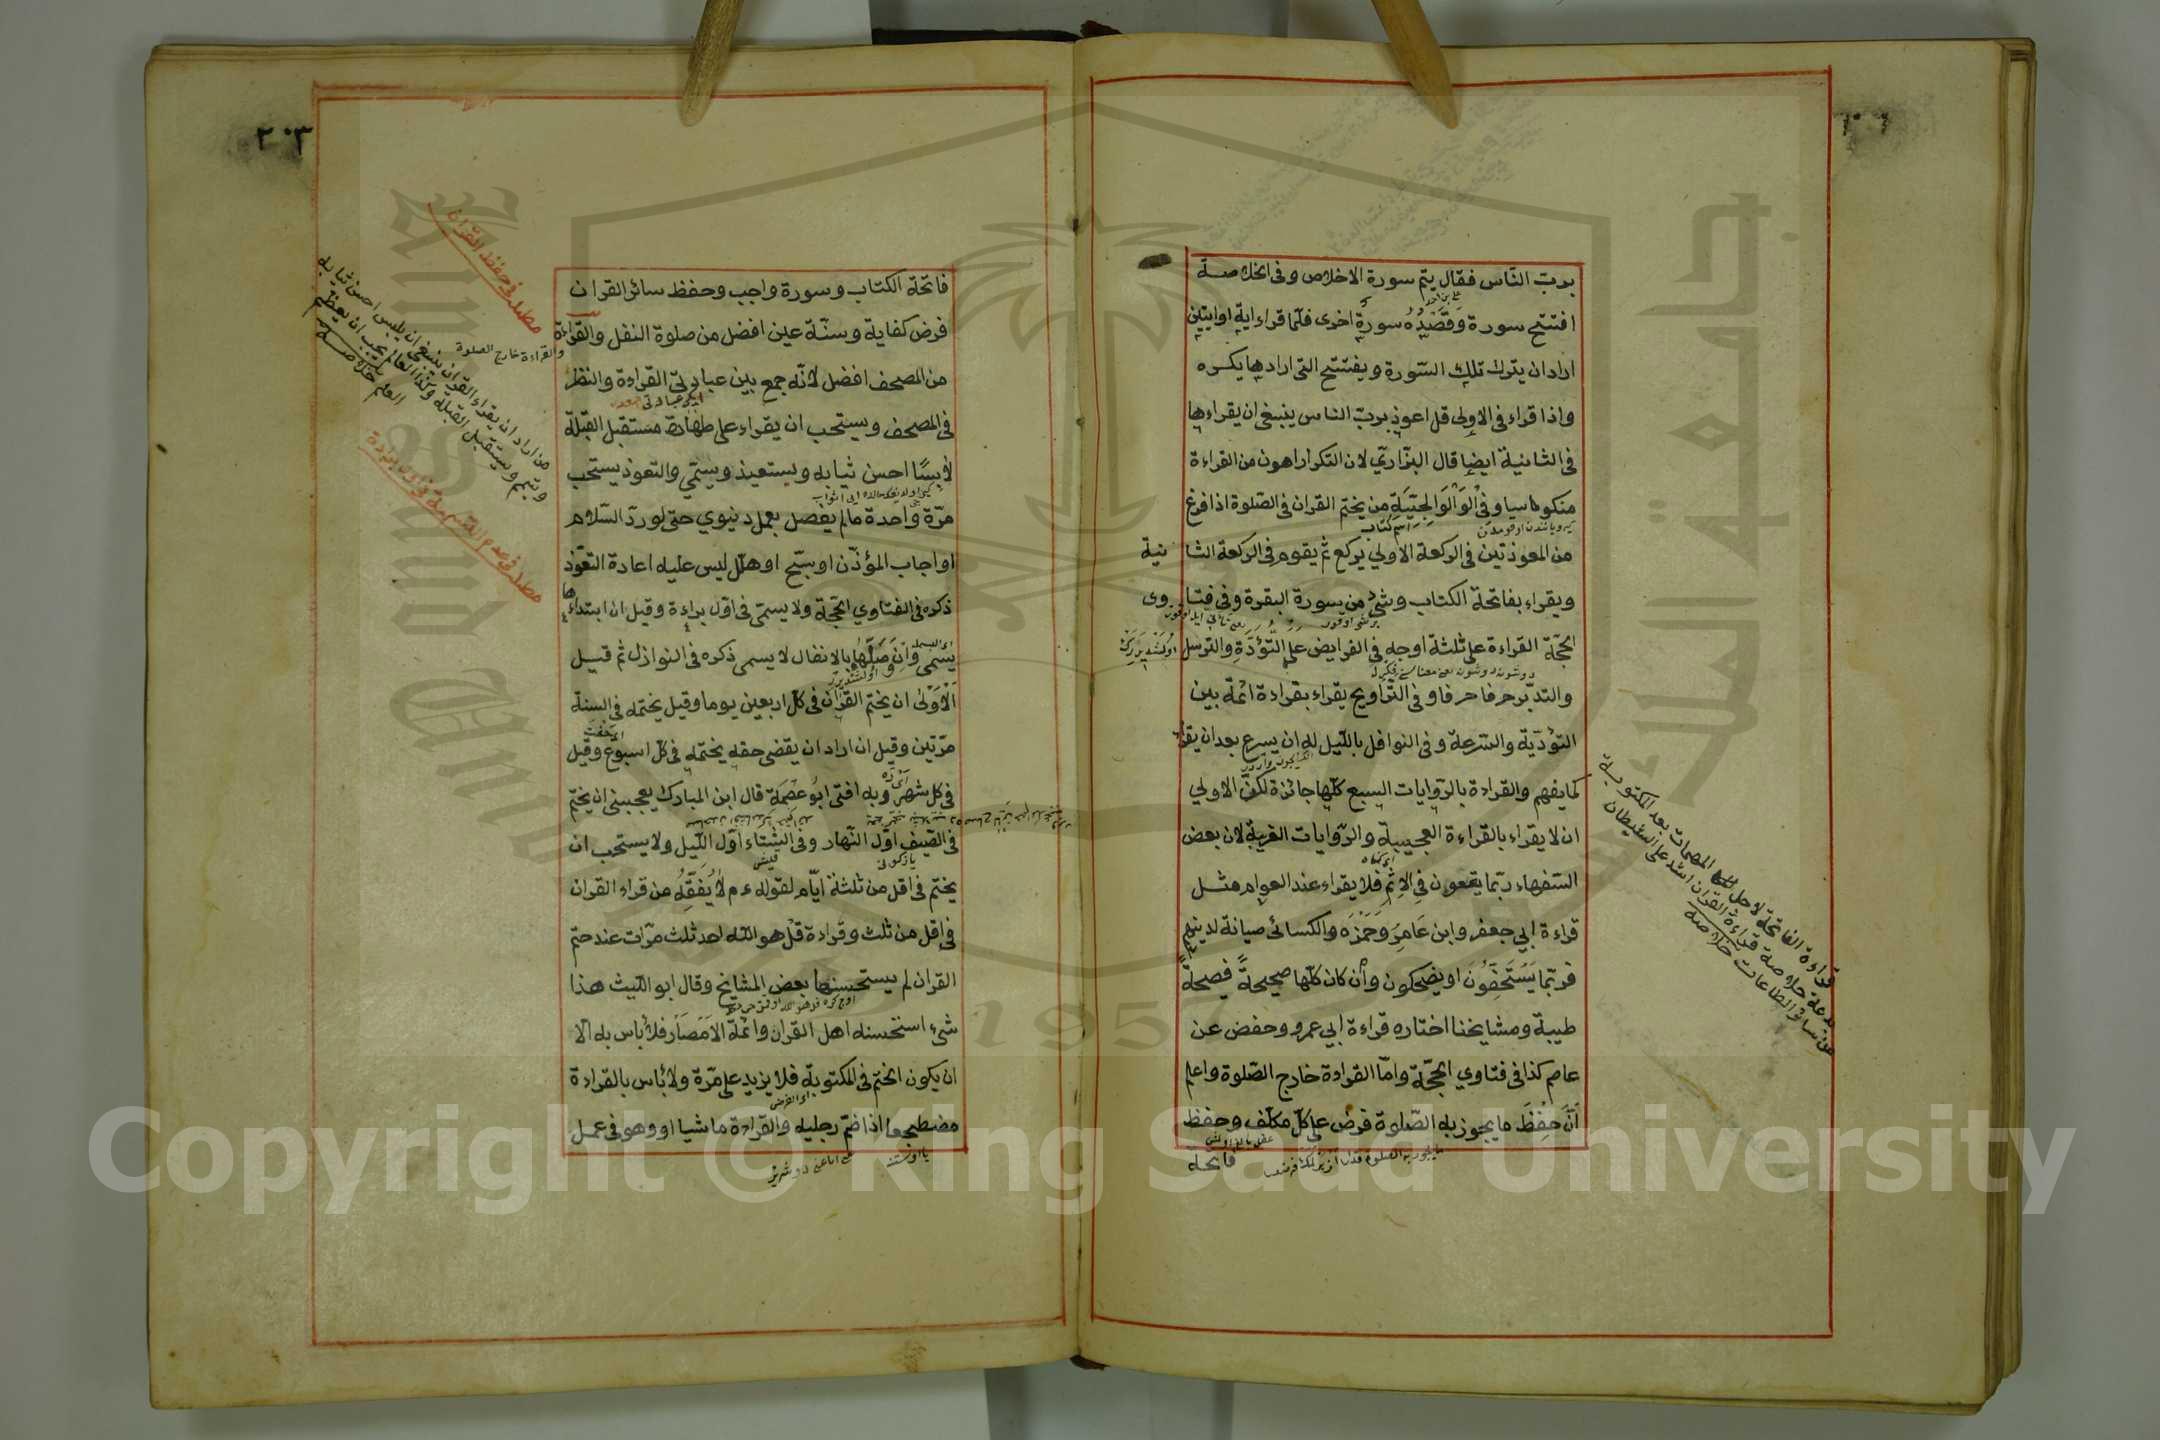 ٢٠٢
برب الناس فقال يتم سورة الاخلاص وفى الخلاصة
افتتح سورة وقصده سورة اخرى فلما قراء اية او ايتين
اراد ان يترك تلك السورة ويفتتح التى ارادها يكره
واذا قراء فى الاولى قل اعوذ برب الناس ينبغى ان يقراءها
فى الثانية ايضا قال البزازى لان التكرار اهون من القراءة
منكوسا وفى الوَالْوَالِجِيَّةِ من يختم القران فى الصلوة اذا فرغ
من المعوذتين فى الركعة الاولى يركع ثم يقوم فى الركعة الثانية
ويقراء بفاتحة الكتاب وشئ من سورة البقرة وفى فتاوى
الحجّة القراءة على ثلثة اوجه فى الفرايض على التُّؤَدَةِ والترسل
والتدبّر حرفا حرفا وفى التراويح يقراء بقراءة ائمّة بين
التؤدية والسرعة وفى النوافل بالليل له ان يسرع بعد ان يقراء
كما يفهم والقراءة بالروايات السبع كلّها جائزة لكنّ الاولى
ان لا يقراء بالقراءة العجيبة والروايات الغريبة لان بعض
السّفهاء ربّما يقعون فى الاثم فلا يقراء عند العوام مثل
قراءة ابى جعفر وابن عَامِر وَحَمْزَه والكسائى صيانة لدينهم
فربّما يَسْتَخِفّونَ او يضحكون وان كان كلّها صحيحةً فصيحة
طيبة ومشايخنا اختاره قراءة ابى عمرو وحفض عن
عاصم كذا فى فتاوى الحجّة وامّا القراءة خارج الصّلوة واعلم
أَنَّ حِفْظَ ما يجوز به الصّلوة فرض على كلّ مكلّف وحفظ
فاتحة
قراءة الفاتحة لاجل المهمات بعد المكتوبة
بدعة خلاصة قراءة القران اشد على الشيطان
من سائر الطاعات خلاصه
٢٠٣
فاتحة الكتاب وسورة واجب وحفظ سائر القران
فرض كفاية وسنّة عين افضل من صلوة النفل والقراءة
من المصحف افضل لانّه جمع بين عبادتى القراءة والنظر
فى المصحف ويستحب ان يقراء على طهارة مستقبل القبلة
لابسًا احسن ثيابه ويستعيذ ويسمّي والتعوذ يستحب
مرّة واحدة مالم يفصل بعمل دنيوي حتى لو ردّ السّلام
او اجاب المؤذّن او سبّح او هلّل ليس عليه اعادة التعوّذ
ذكره فى الفتاوي الحجّة ولا يسمّى فى اوّل براءة وقيل ان ابتداءها
يسمى وَاِن وَصَلَهَا بالانفال لا يسمى ذكره فى النوازل ثم قيل
اَلْاَوْلى ان يختم القران فى كلّ اربعين يوما وقيل يختمه فى السنة
مرّتين وقيل ان اراد ان يقضى حقه يختمه فى كلّ اسبوع وقيل
فى كل شهر وبه افتى ابو عِصْمَة قال ابن المبارك يعجبنى ان يختم
فى الصّيف اوّل النّهار وفى الشتاء اوّل اللّيل ولا يستحب ان
يختم فى اقل من ثلثة ايّام لقوله ءم لا يُفَقّهُ من قراء القران
فى اقل من ثلث وقراءة قل هو اللّه احد ثلث مرّات عند ختم
القران لم يستحسنها بعض المشايخ وقال ابو اللّيث هذا
شئ استحسنه اهل القران وائمّة الاَمْصَار فلا بأس به الّا
ان يكون الختم فى المكتوبة فلا يزيد على مرّة ولا بأس بالقراءة
مضطجعا اذا ضمّ رجليه والقراءة ماشيا او وهو فى عمل
مطلب وحفظ القران
والقراءة خارج الصلوة
من اراد ان يقراء القران ينبغى ان يلبس احسن ثيابه
ويستقبل القبلة وكذا العالم يجب ان يعظم
العلم خلاصه
Copyright © King Saud University
جامعة الملك سعود
1957